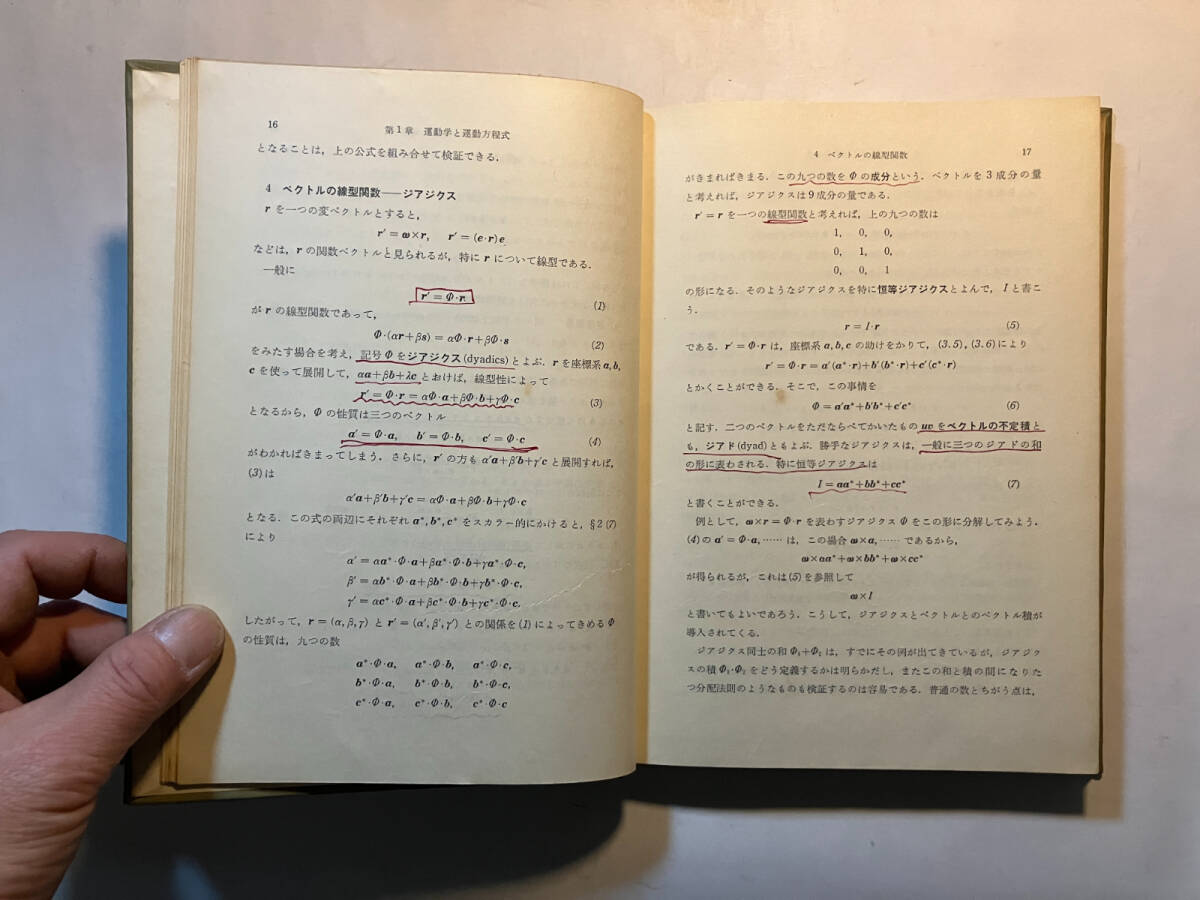 16
第1章 運動学と運動方程式
となることは，上の公式を組み合せて検証できる．
4 ベクトルの線型関数——ジアジクス
r を一つの変ベクトルとすると，
r′＝ω×r,　r′＝(e·r)e
などは，r の関数ベクトルと見られるが，特に r について線型である．
一般に
r′＝Φ·r (1)
が r の線型関数であって，
Φ·(αr＋βs)＝αΦ·r＋βΦ·s (2)
をみたす場合を考え，記号 Φ をジアジクス(dyadics)とよぶ．r を座標系 a, b,
c を使って展開して，αa＋βb＋λc とおけば，線型性によって
r′＝Φ·r＝αΦ·a＋βΦ·b＋γΦ·c (3)
となるから，Φ の性質は三つのベクトル
a′＝Φ·a,　b′＝Φ·b,　c′＝Φ·c (4)
がわかればきまってしまう．さらに，r′ の方も α′a＋β′b＋γ′c と展開すれば，
(3)は
α′a＋β′b＋γ′c＝αΦ·a＋βΦ·b＋γΦ·c
となる．この式の両辺にそれぞれ a*, b*, c* をスカラー的にかけると，§2(7)
により
α′＝αa*·Φ·a＋βa*·Φ·b＋γa*·Φ·c,
β′＝αb*·Φ·a＋βb*·Φ·b＋γb*·Φ·c,
γ′＝αc*·Φ·a＋βc*·Φ·b＋γc*·Φ·c.
したがって，r＝(α, β, γ) と r′＝(α′, β′, γ′) との関係を(1)によってきめる Φ
の性質は，九つの数
a*·Φ·a,　a*·Φ·b,　a*·Φ·c,
b*·Φ·a,　b*·Φ·b,　b*·Φ·c,
c*·Φ·a,　c*·Φ·b,　c*·Φ·c
4 ベクトルの線型関数 17
がきまればきまる．この九つの数を Φ の成分という．ベクトルを3成分の量
と考えれば，ジアジクスは9成分の量である．
r′＝r を一つの線型関数と考えれば，上の九つの数は
1,　0,　0,
0,　1,　0,
0,　0,　1
の形になる．そのようなジアジクスを特に恒等ジアジクスとよんで，I と書こ
う．
r＝I·r (5)
である．r′＝Φ·r は，座標系 a, b, c の助けをかりて，(3.5), (3.6)により
r′＝Φ·r＝a′(a*·r)＋b′(b*·r)＋c′(c*·r)
とかくことができる．そこで，この事情を
Φ＝a′a*＋b′b*＋c′c* (6)
と記す．二つのベクトルをただならべてかいたもの uv をベクトルの不定積と
も，ジアド(dyad)ともよぶ．勝手なジアジクスは，一般に三つのジアドの和
の形に表わされる．特に恒等ジアジクスは
I＝aa*＋bb*＋cc* (7)
と書くことができる．
例として，ω×r＝Φ·r を表わすジアジクス Φ をこの形に分解してみよう．
(4)の a′＝Φ·a, …… は，この場合 ω×a, …… であるから，
ω×aa*＋ω×bb*＋ω×cc*
が得られるが，これは(5)を参照して
ω×I
と書いてもよいであろう．こうして，ジアジクスとベクトルとのベクトル積が
導入されてくる．
ジアジクス同士の和 Φ₁＋Φ₂ は，すでにその例が出てきているが，ジアジク
スの積 Φ₁·Φ₂ をどう定義するかは明らかだし，またこの和と積の間になりた
つ分配法則のようなものも検証するのは容易である．普通の数とちがう点は，